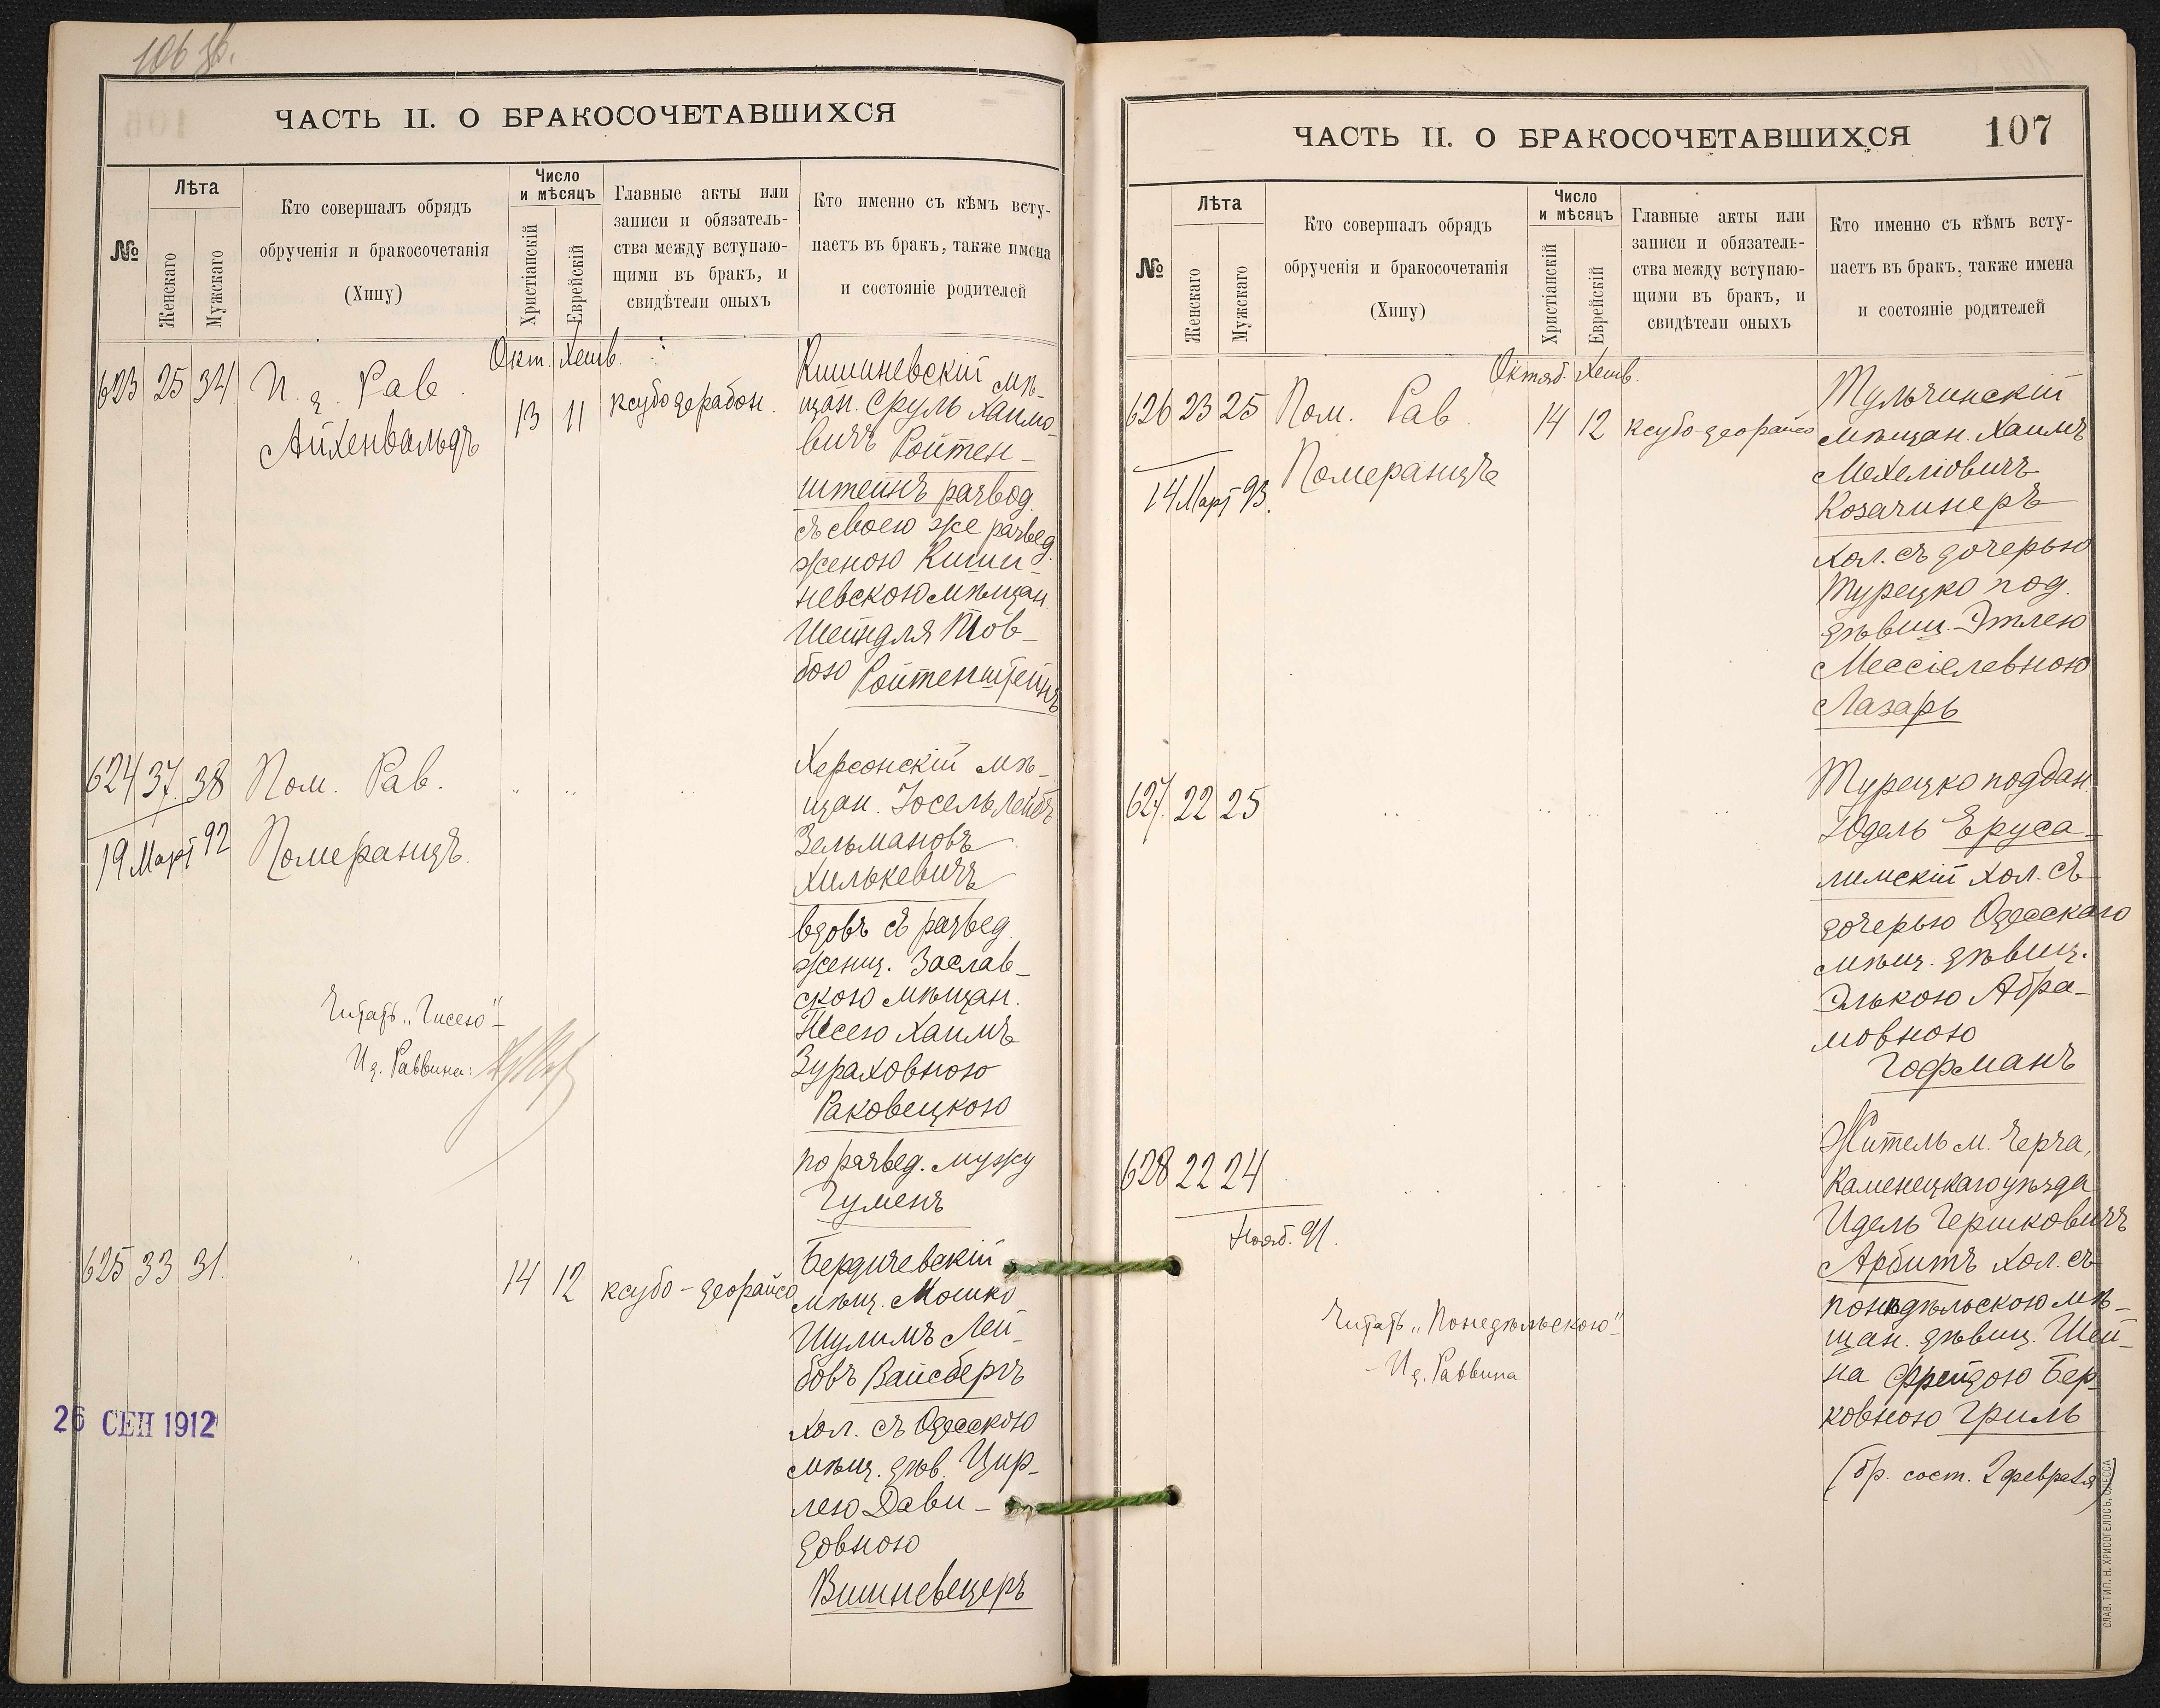 106 об.
ЧАСТЬ II. О БРАКОСОЧЕТАВШИХСЯ
№
Лѣта
Женскаго
Мужскаго
Кто совершалъ обрядъ
обрученія и бракосочетанія
(Хипу)
Число
и мѣсяцъ
Христіанскій
Еврейскій
Главные акты или
записи и обязатель-
ства между вступаю-
щими въ бракъ, и
свидѣтели оныхъ
Кто именно съ кѣмъ всту-
паетъ въ бракъ, также имена
и состояніе родителей
Окт. Хешв.
623 25 34 И. д. Рав.
Айхенвальдъ
13 11 ксубо дерабон.
Кишиневскій мѣ-
щан. Сруль Хаимо-
вичъ Ройтен-
штейнъ развод.
съ своею же развед.
женою Киши-
невскою мѣщан.
Шейндля Тов-
бою Ройтенштейнъ
624 37 38 Пом. Рав.
19 Март 92 Померанцъ.
" " "
Херсонскій мѣ-
щан. Іосель Лейбъ
Зельмановъ
Хилькевичъ
вдовъ съ развед.
женщ. Заслав-
скою мѣщан.
Гісею Хаимъ
Зураховною
Раковецкою
по развед. мужу
Гуменъ
Читать „Гисею"
И д. Раввина:
625 33 31
"
14 12 ксубо-деорайсо
Бердичевскій
мѣщ. Мошко
Шулимъ Лей-
бовъ Вайсбергъ
хол. съ Одесскою
мѣщ. дѣв. Цир-
лею Дави-
довною
Вишневецеръ
26 СЕН 1912
107
ЧАСТЬ II. О БРАКОСОЧЕТАВШИХСЯ
№
Лѣта
Женскаго
Мужскаго
Кто совершалъ обрядъ
обрученія и бракосочетанія
(Хипу)
Число
и мѣсяцъ
Христіанскій
Еврейскій
Главные акты или
записи и обязатель-
ства между вступаю-
щими въ бракъ, и
свидѣтели оныхъ
Кто именно съ кѣмъ всту-
паетъ въ бракъ, также имена
и состояніе родителей
Октяб. Хешв.
626 23 25 Пом. Рав.
14 Март 93. Померанцъ
14 12 ксубо-деорайсо
Тульчинскій
мѣщан. Хаимъ
Мехеліовичъ
Козачинеръ
хол. съ дочерью
Турецко под.
дѣвиц. Этлею
Мессіелевною
Лазарь
627. 22 25
" " " "
Турецко поддан.
Юдель Еруса-
лимскій хол. съ
дочерью Одесскаго
мѣщ. дѣвиц.
Элькою Абра-
мовною
Гофманъ
628 22 24
Нояб. 91.
" " " "
Житель м. Черча,
Каменецкаго уѣзда
Идель Гершковичъ
Арбитъ хол. съ
понедѣльскою мѣ-
щан. дѣвиц. Шей-
на Фрейдою Бер-
ковною Гриль
(бр. сост. 2 февраля)
Читать „Понедѣльскою"
И д. Раввина
СЛАВ. ТИП. Н. ХРИСОГЕЛОСЪ, ОДЕССА